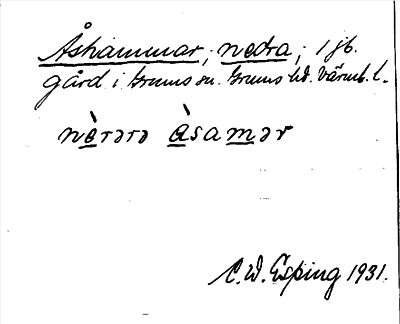 Åshammar, nedra; 1 jb.
gård i Grums sn. Grums hd. Värml. l.
nèrərə àsamər
C. W. Esping 1931.